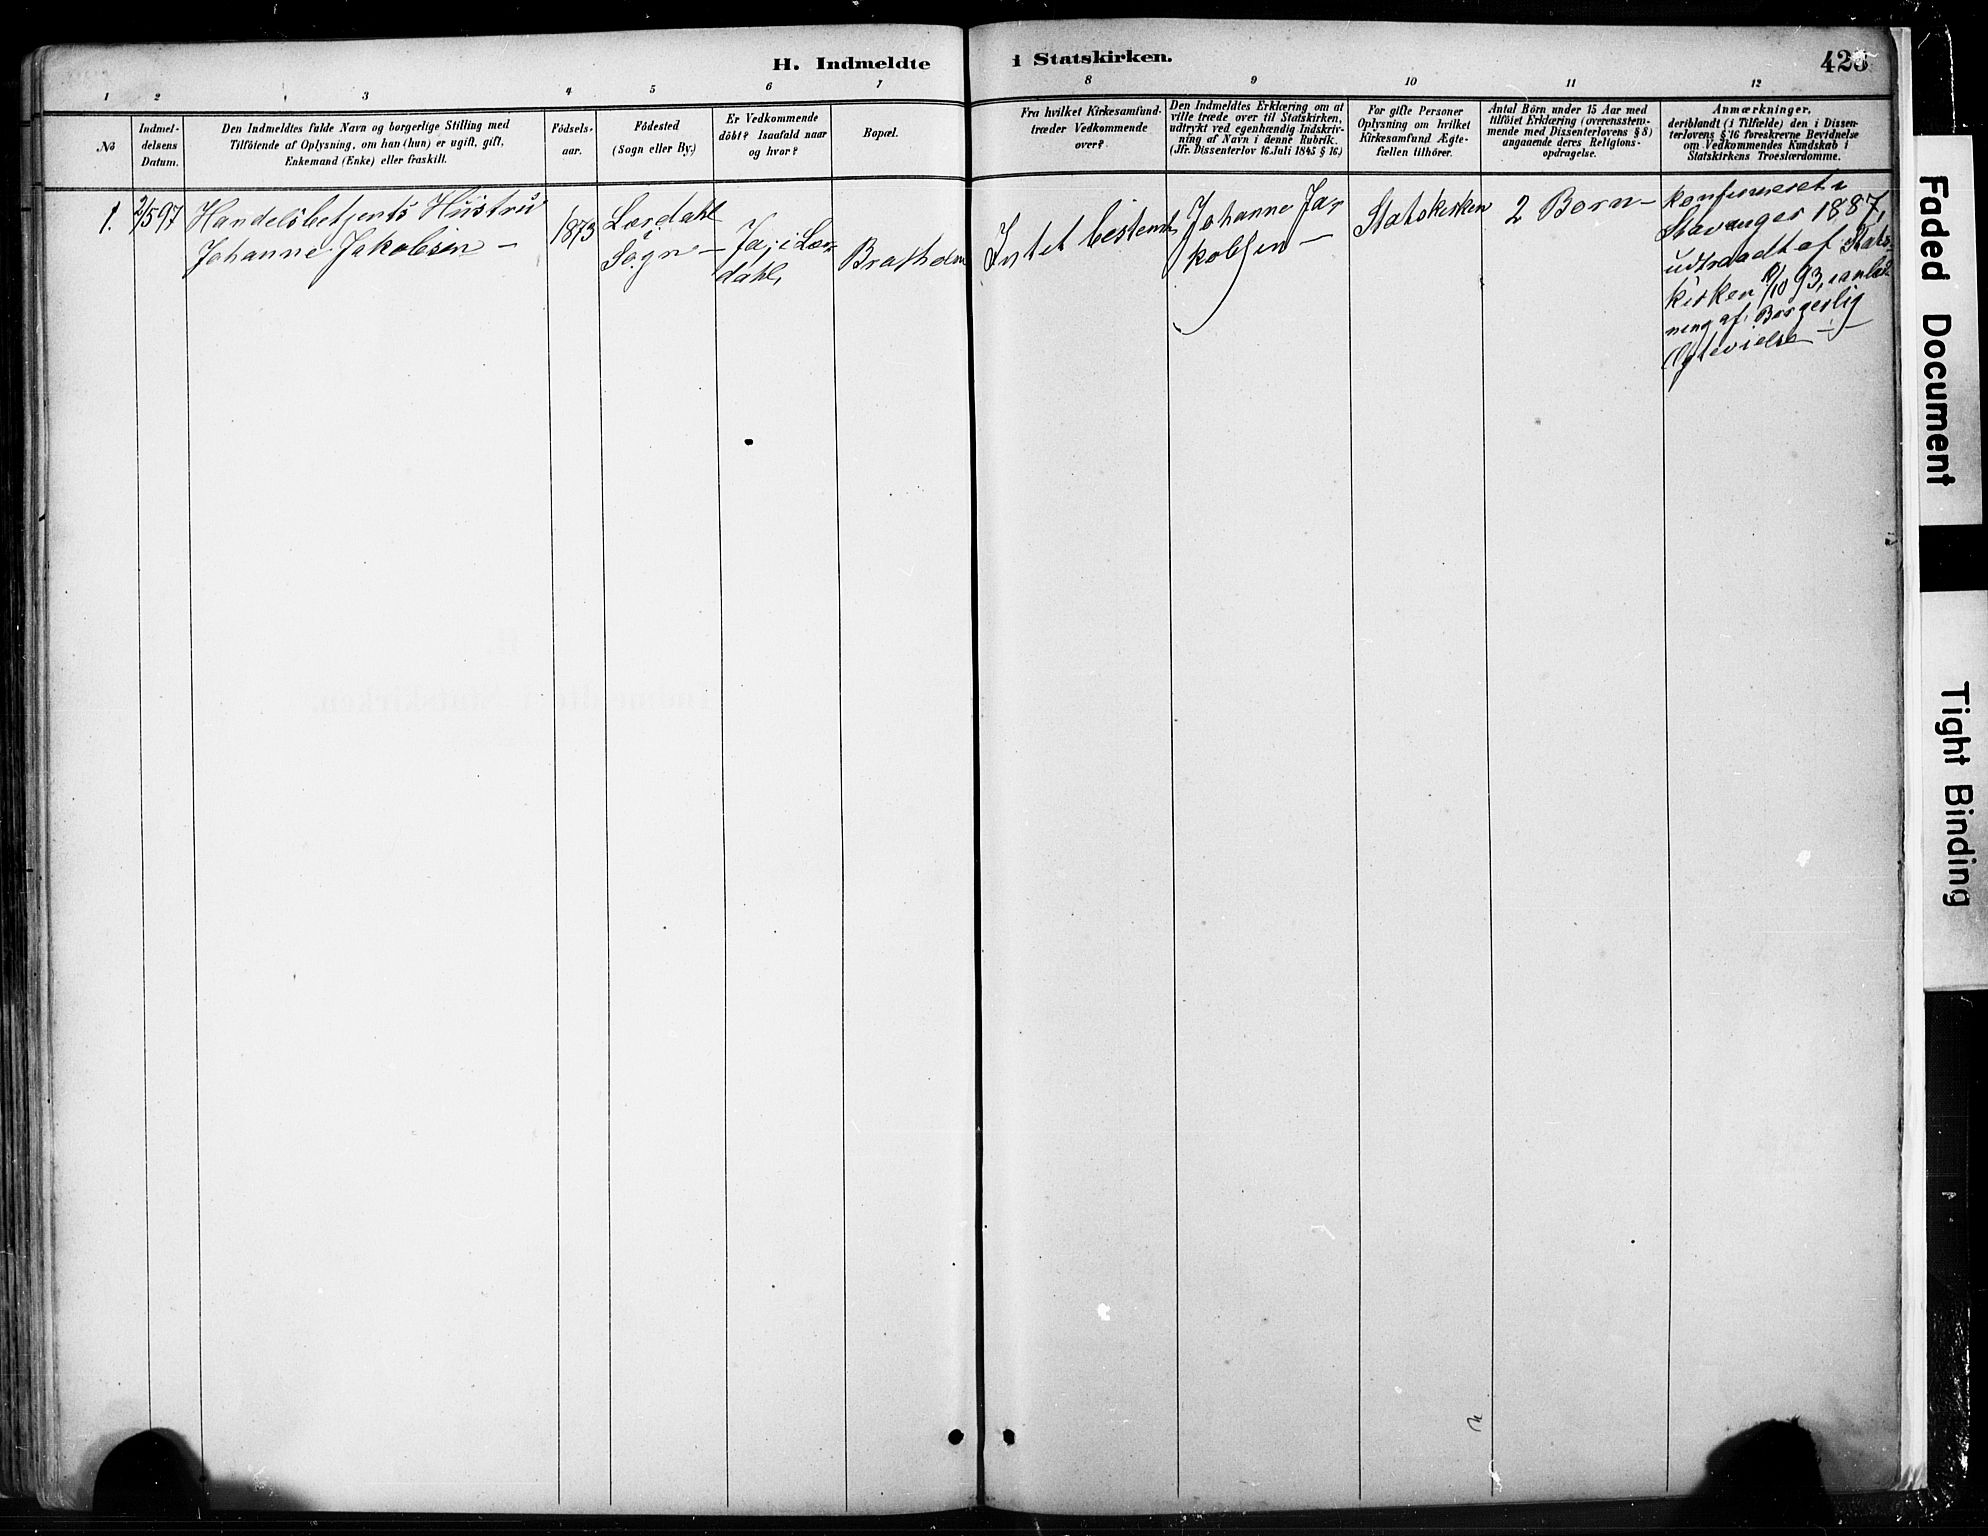 H. Indmeldte i Statskirken.
423
1 2 3 4 5 6 7 8 9 10 11 12
No
Indmel-
delsens
Datum.
Den Indmeldtes fulde Navn og borgerlige Stilling med
Tilföiende af Oplysning, om han (hun) er ugift, gift,
Enkemand (Enke) eller fraskilt.
Födsels-
aar.
Födested
(Sogn eller By.)
Er Vedkommende
döbt? Isaafald naar
og hvor?
Bopæl.
Fra hvilket Kirkesamfund
træder Vedkommende
over?
Den Indmeldtes Erklæring om at
ville træde over til Statskirken,
udtrykt ved egenhændig Indskriv-
ning af Navn i denne Rubrik.
(Jfr. Dissenterlov 16. Juli 1845 § 16.)
For gifte Personer
Oplysning om hvilket
Kirkesamfund Ægte-
fællen tilhörer.
Antal Börn under 15 Aar med
tilföiet Erklæring (overensstem-
mende med Dissenterlovens § 8)
angaaende deres Religions-
opdragelse.
Anmærkninger,
deriblandt (i Tilfælde) den i Dissen-
terlovens § 16 foreskrevne Bevidnelse
om Vedkommendes Kundskab i
Statskirkens Troeslærdomme.
1.
2/5 97
Handelsbetjents Hustru
Johanne Jakobsen -
1873
Lærdahl
i
Sogn -
Ja, i Lær-
dahl,
Braseholm
Intet bestemt
Johanne Ja-
kobsen -
Statskirken
2 Born -
konfirmeret i
Stavanger 1887,
udtraadt af Stats-
kirken /10 93, i anled-
ning af Borgerlig
Ægtevielse -
Faded Document
Tight Binding